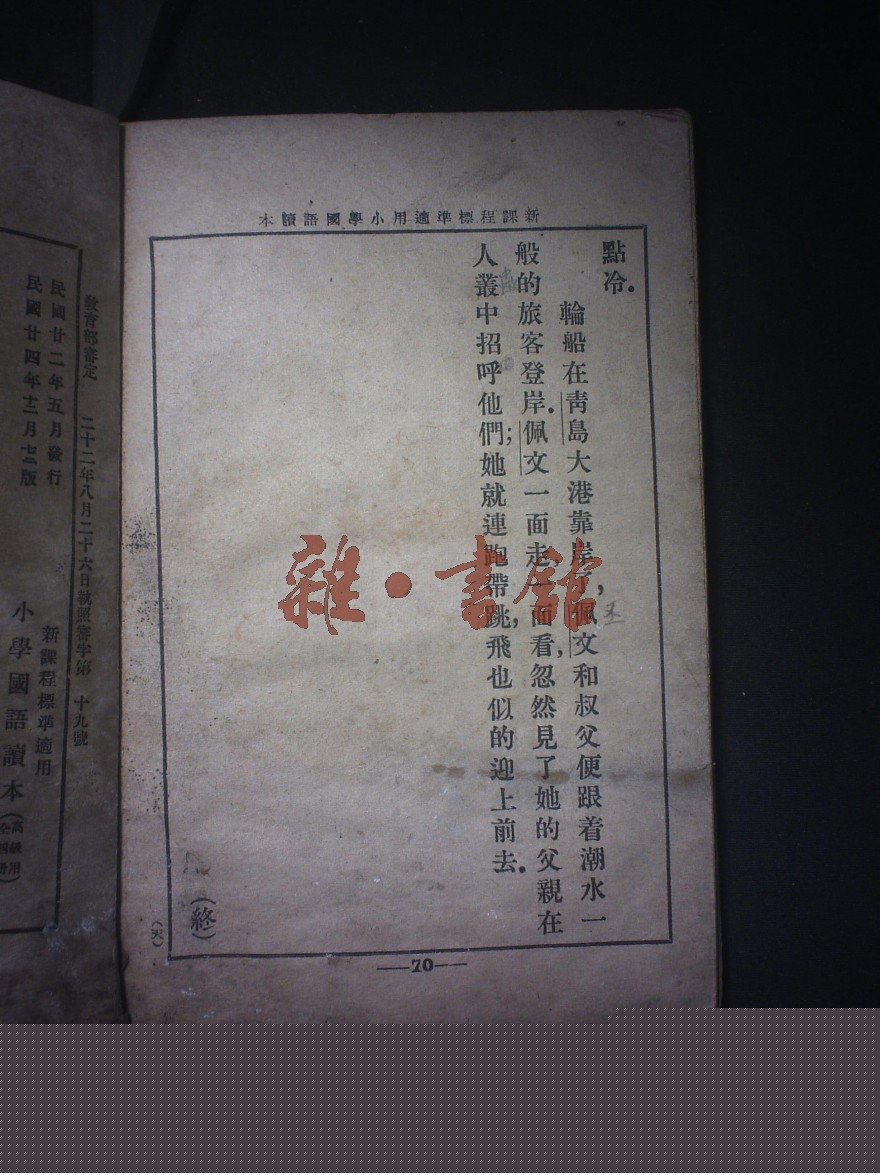 新課程標準適用小學國語讀本
點冷.
輪船在靑島大港靠岸了,佩文和叔父便跟着潮水一
般的旅客登岸.佩文一面走,一面看,忽然見了她的父親在
人叢中招呼他們;她就連跑帶跳,飛也似的迎上前去.
(終)
—70—
雜·書館
敎育部審定 二十二年八月二十六日執照審字第 十九號
民國廿二年五月發行
民國廿四年十二月十三版
新課程標準適用
小學國語讀本